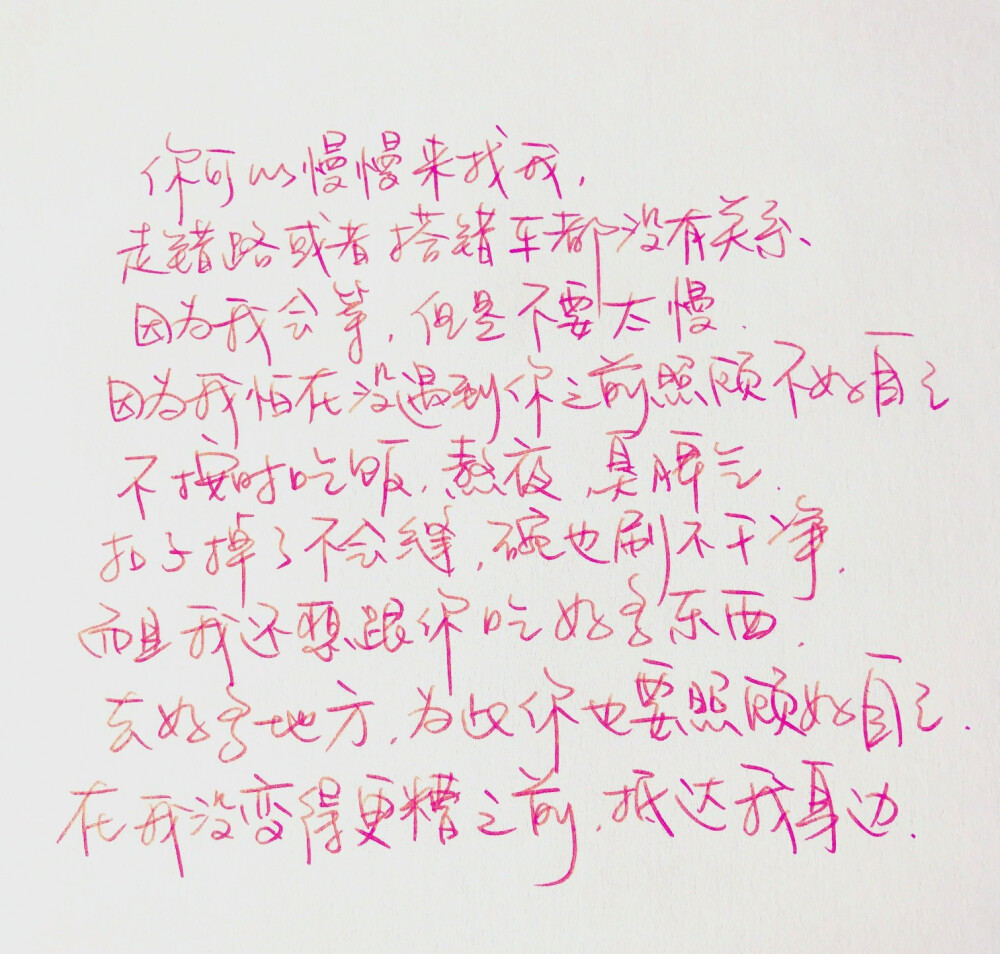 你可以慢慢来找我,
走错路或者搭错车都没有关系、
因为我会等,但是不要太慢.
因为我怕在没遇到你之前照顾不好自己
不按时吃饭.熬夜,臭脾气.
扣子掉了不会缝,碗也刷不干净.
而且我还想跟你吃好多东西.
去好多地方,为此你也要照顾好自己.
在我没变得更糟之前.抵达我身边.